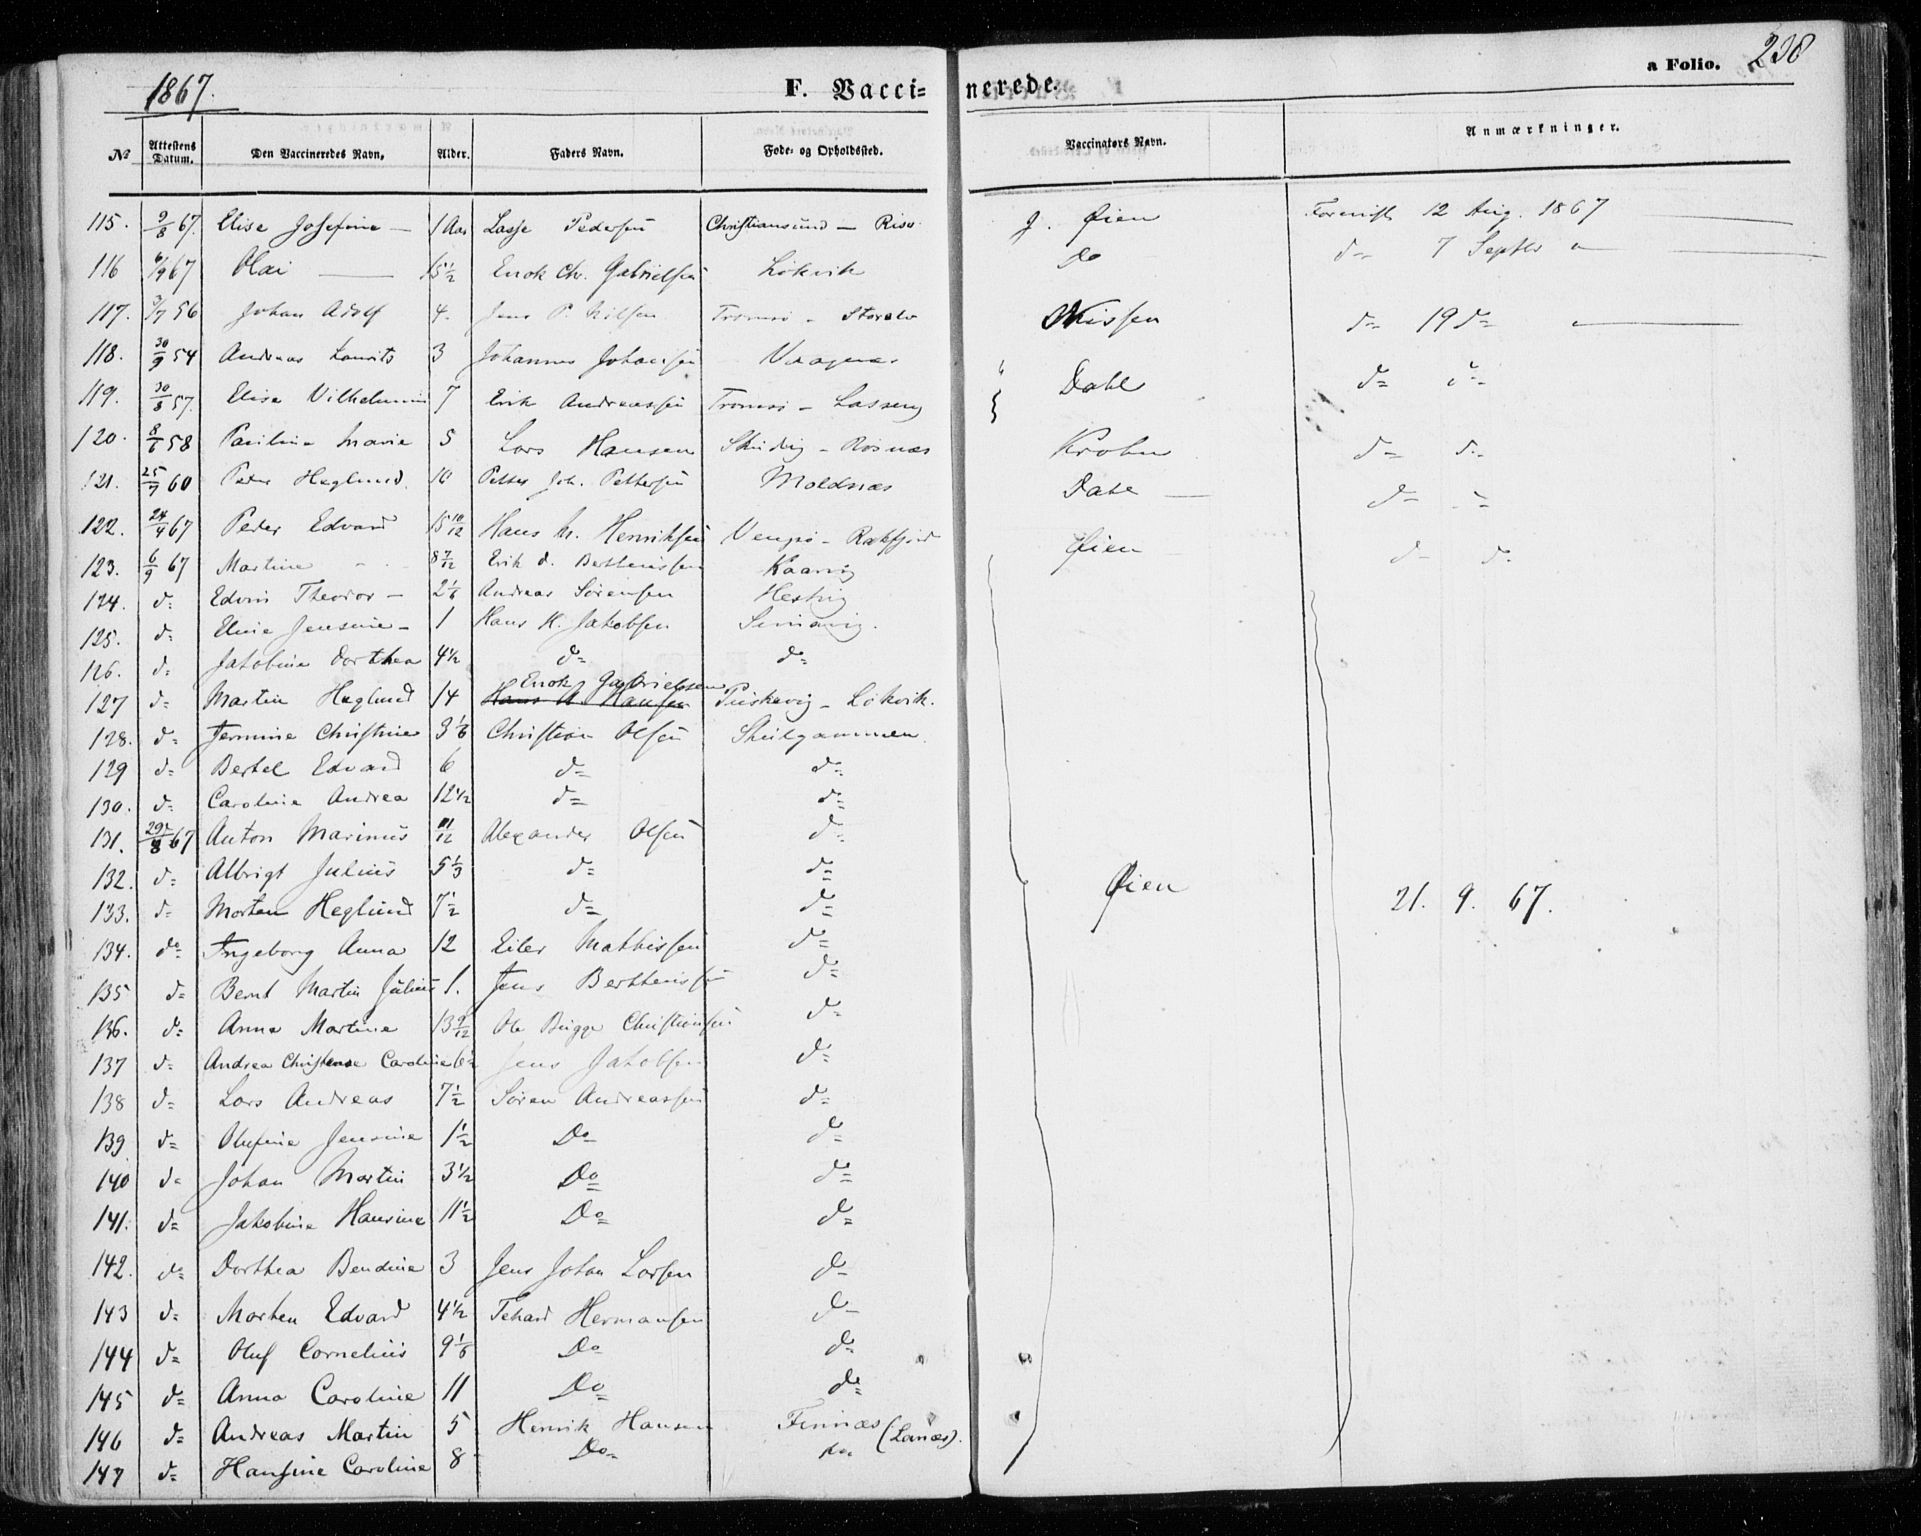 1867.
F. Vacci=
nerede.
a Folio. 238
No Attestens Datum. Den Vaccineredes Navn, Alder. Faders Navn. Føde- og Opholdssted. Vaccinators Navn. Anmærkninger.
115. 9/8 67. Elise Josefine — 1 Aar Lasse Pedersen Christiansund — Risø J. Øien Forevist 12 Aug. 1867
116 6/9 67 Olai — 15½ Enok Chr. Gabrielsen Lökvik Do d= 7 Septbr
117. 3/7 56 Johan Adolf 4. Jens P. Nilsen Tromsö - Storelv Nissen d= 19 d=
118. 30/9 54 Andreas Laurits 3 Johannes Johansen
119. 30/8 57. Elise Vilhelmine 7 Erik Andreassen Tromsö - Dahl d= d=
120. 8/6 58 Pauline Marie 5 Lars Hansen Krohn d= d=
121. 25/7 60 Peder Heglund. 10 Petter Joh. Pettersen Moldnæs Dahl — d= d=
122. 24/4 67 Peder Edvard 15 10/12 Hans M. Henriksen Vengsö - Rakfjord Øien d= d=
123. 6/9 67 Martine 8 7/12 Erik d. Berthenssen Kaarvig
124. d= Edvin Theodor — 2 1/6 Andreas Sörensen
125. d= Eline Jensine — 1 Hans H. Jakobsen
126. d= Jakobine Dorthea 4½ d= d=
Enok Gabrielsen
127 d= Martin Heglund 14 Hans A Hansen Lökvik.
128. d= Jermine Christine 3 1/6 Christian Olsen Skulgammen.
129 d= Bertel Edvard 6 d= d=
130. d= Caroline Andrea 12½ d= d=
131. 67 Anton Marinus 11/12 Alexander Olsen d=
132. d= Albrigt Julius 5⅓ d= d= Øien 21. 9. 67.
133. d= Morten Heglund 7½ d= d=
134. do= Ingeborg Anna 12 Eiler Mathissen d=
135 d= Bernt Martin Julius 1. Jens Berthenssen d=
136. d= Anna Martine 13 9/12 Ole Brigge Christiansen d=
137 d= Andrea Christense Caroline 6½ Jens Jakobsen d=
138 d= Lars Andreas 7½ Sören Andreassen d=
139 d= Olufine Jensine 1½ Do d=
140 d= Johan Martin 3½ Do= d=
141. d= Jakobine Hansine 11½ Do= d=
142. d= Dorthea Bendine 3 Jens Johan Larsen d=
143 d= Morten Edvard 4½ Hermansen d=
144 d= Oluf Cornelius 9 1/6 Do d=
145 d= Anna Caroline 11 Do= do=
146 d= Andreas Martin 5 Henrik Hansen Finnæs (Lanæs).
147 d= Hansine Caroline 8 Do=